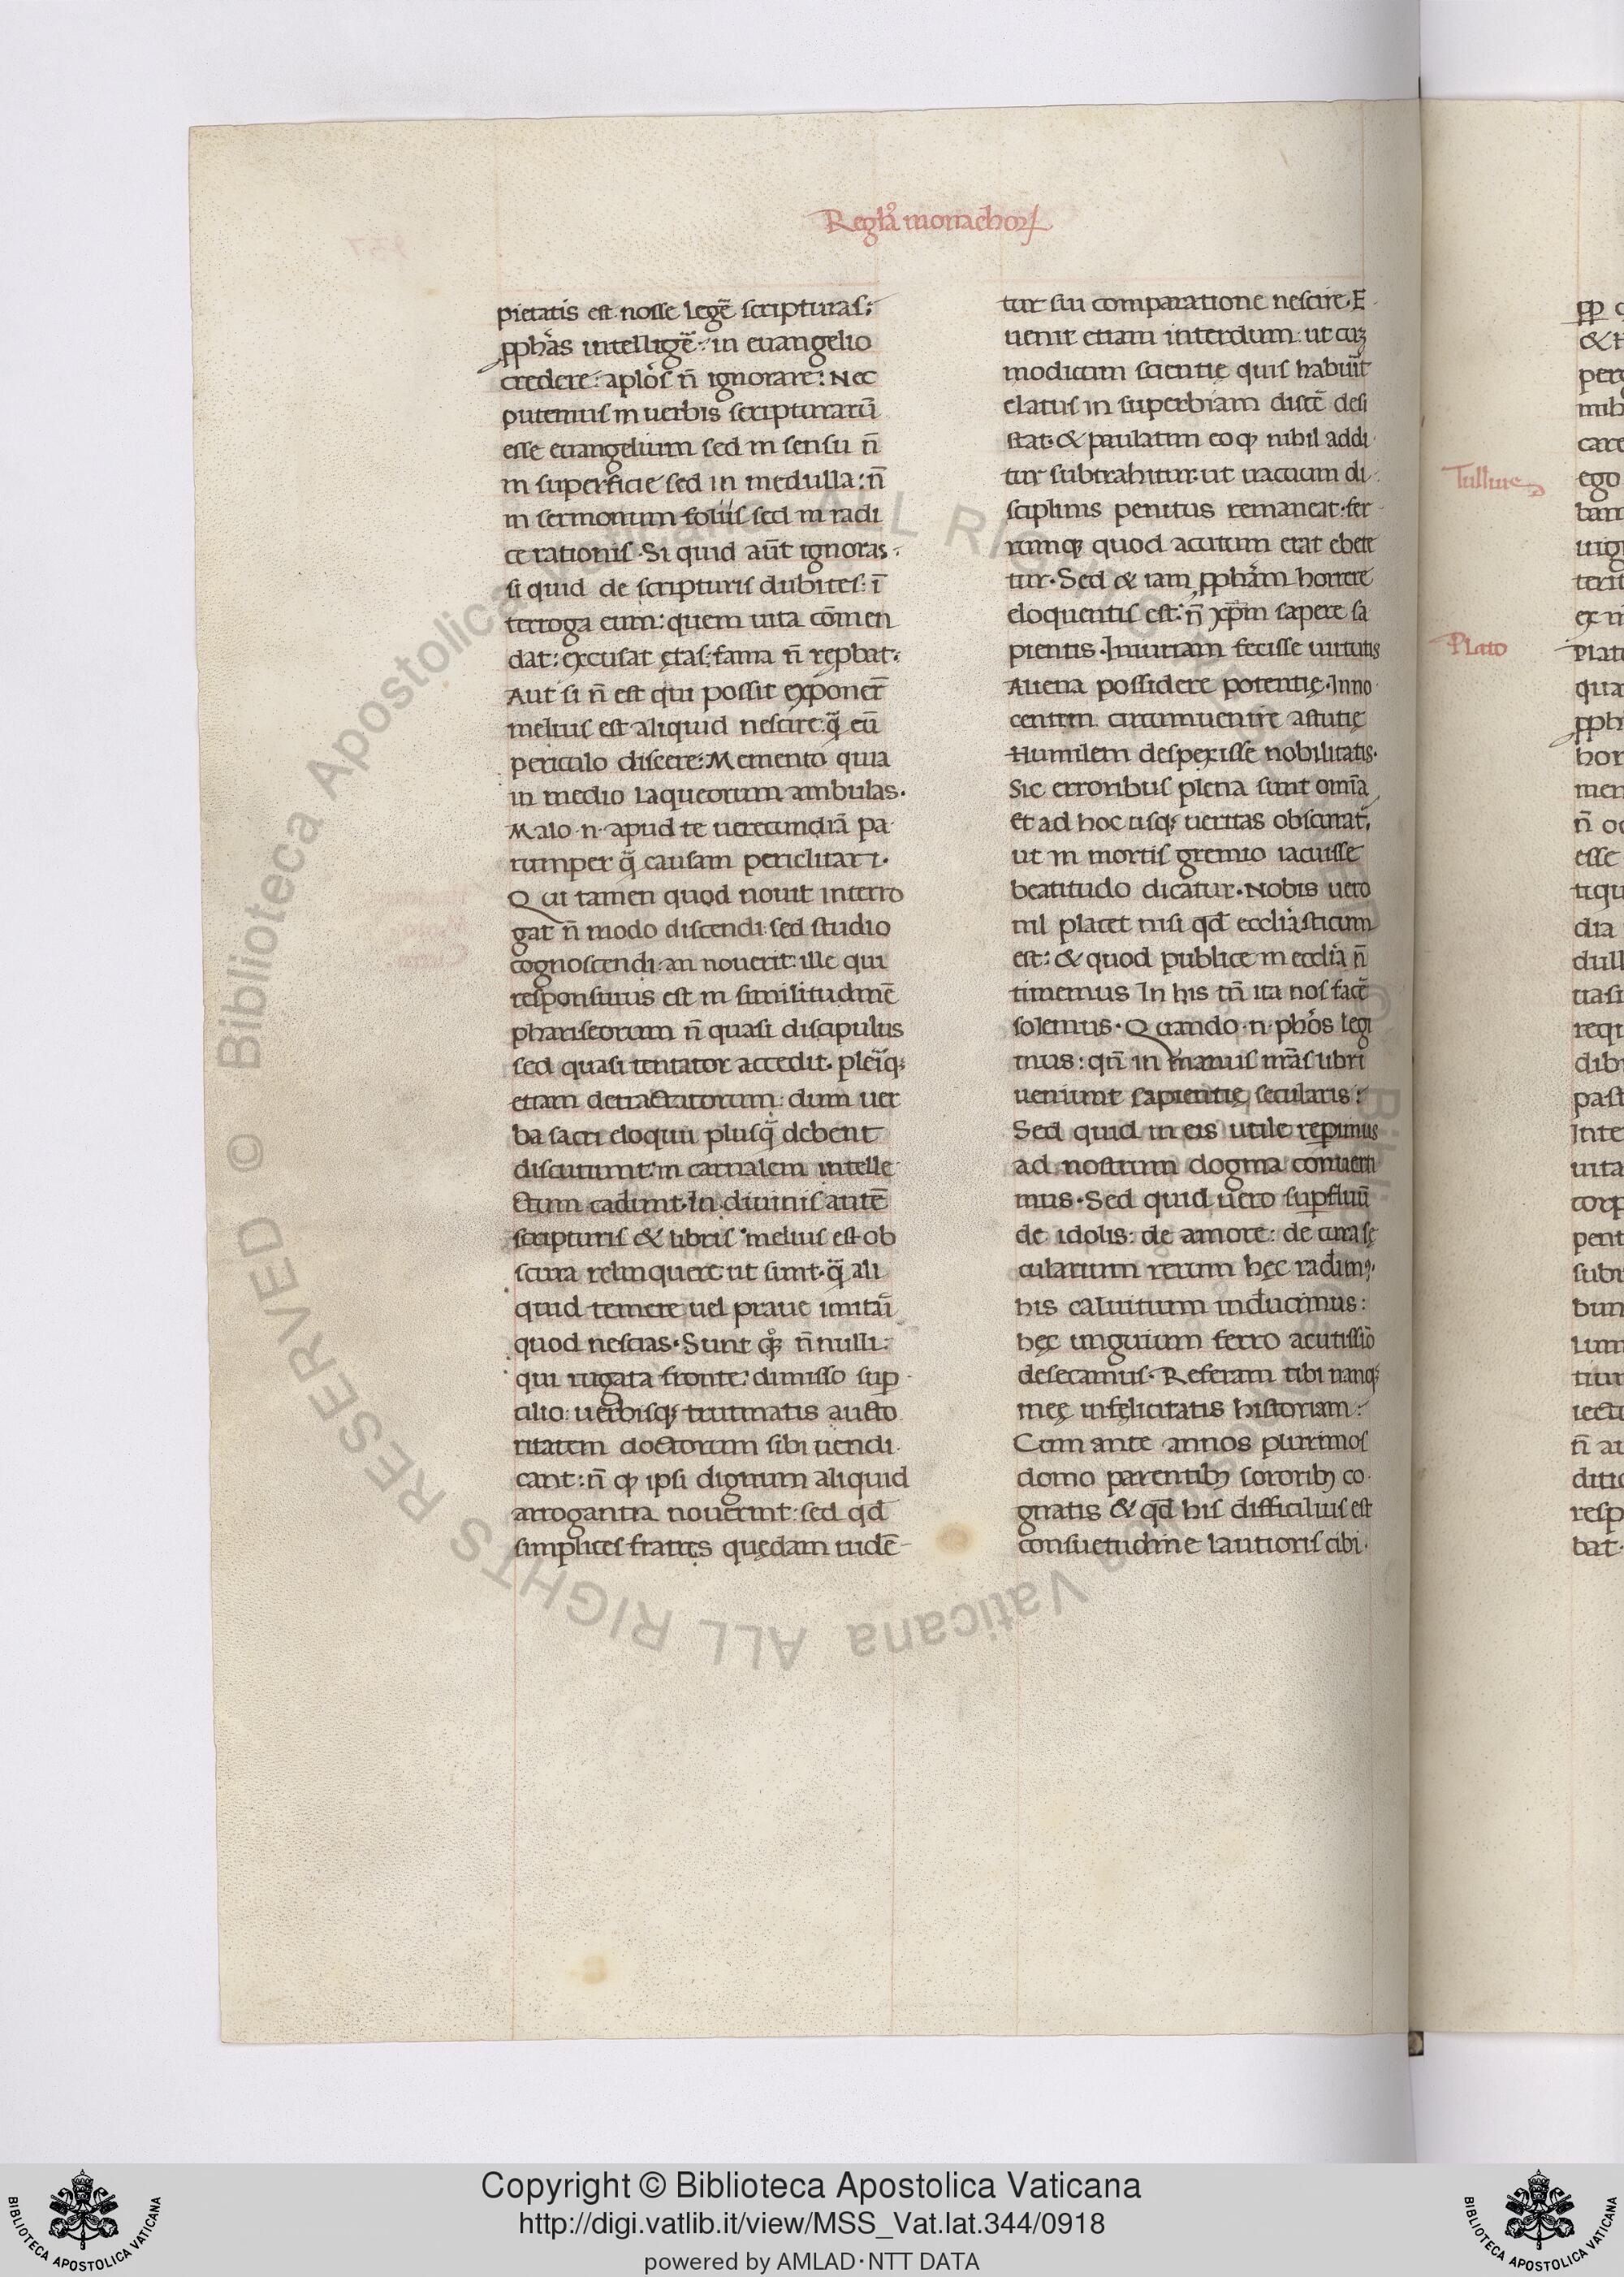 Regl̃a monachoꝝ
pietatis est nosse legẽ scripturas:
ꝓph̃as intelligẽ: in euangelio
credere: apl̃os ñ ignorare: Nec
putemus in uerbis scripturarũ
esse euangelium sed in sensu ñ
in superficie sed in medulla: ñ
in sermonum foliis sed in radi
ce rationis. Si quid aũt ignoras.
si quid de scripturis dubites: ĩ
terroga eum: quem uita cõmen
dat: excusat ętas: fama ñ reꝓbat:
Aut si ñ est qui possit exponer̃
melius est aliquid nescire: q̃ cũ
periculo discere: Memento quia
in medio laqueorum ambulas.
Malo .n. apud te uerecundiã pa
rumper q̃ causam periclitari.
Qui tamen quod nouit interro
gat ñ modo discendi: sed studio
cognoscendi: an nouerit: ille qui
responsurus est in similitudinẽ
phariseorum ñ quasi discipulus
sed quasi tentator accedit. pleĩqꝫ
etiam detractatorum: dum uer
ba sacri eloquii plusq̃ debent
discutiunt: in carnalem intelle
ctum cadunt. In diuinis autẽ
scripturis & libris melius est ob
scura relinquere ut sunt. q̃ ali
quid temere uel praue imitãi
quod nescias. Sunt ñnulli:
qui rugata fronte: dimisso suꝑ
cilio: uerbisqꝫ trutinatis aucto
ritatem doctorum sibi uendi
cant: ñ ꝙ ipsi dignum aliquid
arrogantia nouerint: sed qd̃
simplices fratres quędam uidẽ
tur sui comparatione nescire. E
uenit etiam interdum: ut cuꝫ
modicum scientię quis habuĩt
elatus in superbiam discẽ desi
stat. & paulatim eo ꝙ nihil addi
tur subtrahitur. ut uacuum di
sciplinis penitus remaneat. fer
rumqꝫ quod acutum erat ebete
tur. Sed & iam ꝓph̃am horrere
eloquentis est: ñ xp̃m sapere sa
pientis. Iniuriam fecisse uirtutis
Aliena possidere potentię. Inno
centem circumuenire astutię
Humilem despexisse nobilitatis.
Sic erroribus plena sunt omĩa
et ad hoc usqꝫ ueritas obscurat̃,
ut in mortis gremio iacuisse
beatitudo dicatur. Nobis uero
nil placet nisi qd̃ eccl̃iasticum
est: & quod publice in eccl̃ia ñ
timemus In his tñ ita nos facẽ
solemus. Quando .n. ph̃os legi
mus: qñ in manus nr̃as libri
ueniunt sapientię secularis:
Sed quid in eis utile reꝑimus
ad nostrum dogma conuerti
mus. Sed quid uero suꝑfluũ
de idolis: de amore: de cura sę
cularium rerum hęc radimꝰ.
his caluitium inducimus:
hęc unguium ferro acutissiõ
desecamus. Referam tibi nanqꝫ
meę infęlicitatis historiam:
Cum ante annos plurimos
domo parentibꝫ sororibꝫ co
gnatis & qd̃ his difficilius est
consuetudine lautioris cibi.
Tullius
Plato
Copyright © Biblioteca Apostolica Vaticana
http://digi.vatlib.it/view/MSS_Vat.lat.344/0918
powered by AMLAD·NTT DATA
BIBLIOTECA APOSTOLICA VATICANA
BIBLIOTECA APOSTOLICA VATICANA